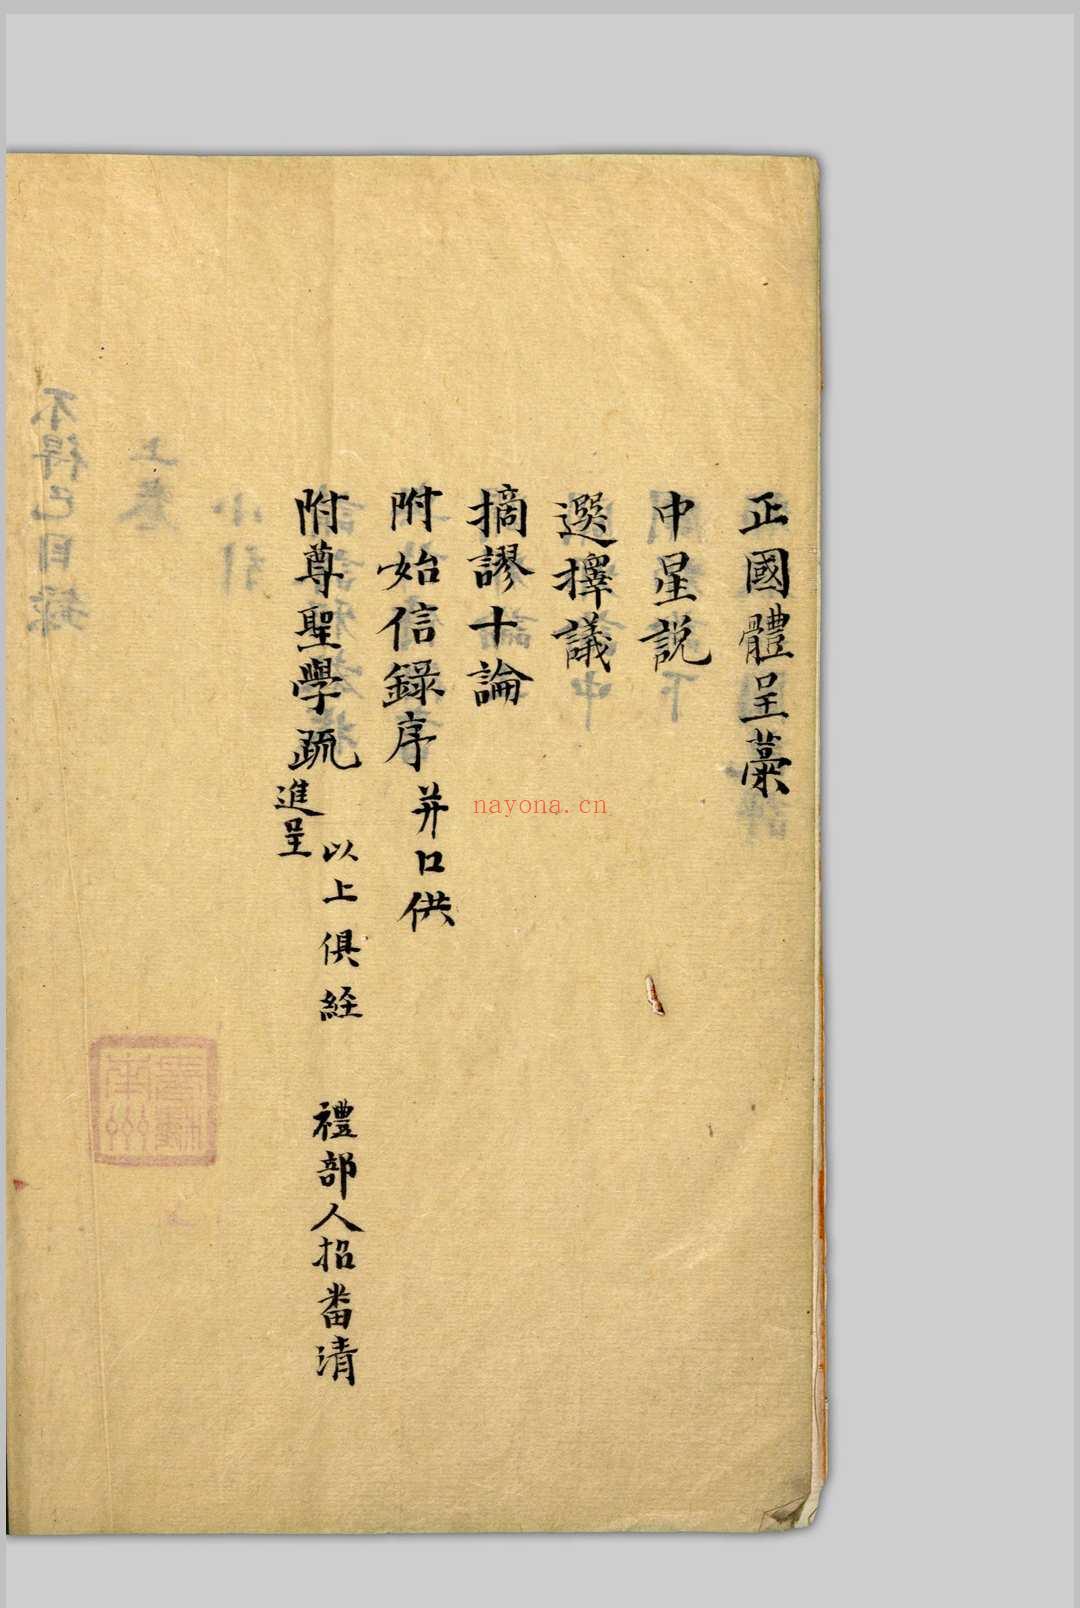 正國體呈藁
中星説
選擇議
摘謬十論
附始信錄序并口供
附尊聖學疏進呈
以上俱経 禮部人招畨清
nayona.cn
不得已目録
上卷
小引